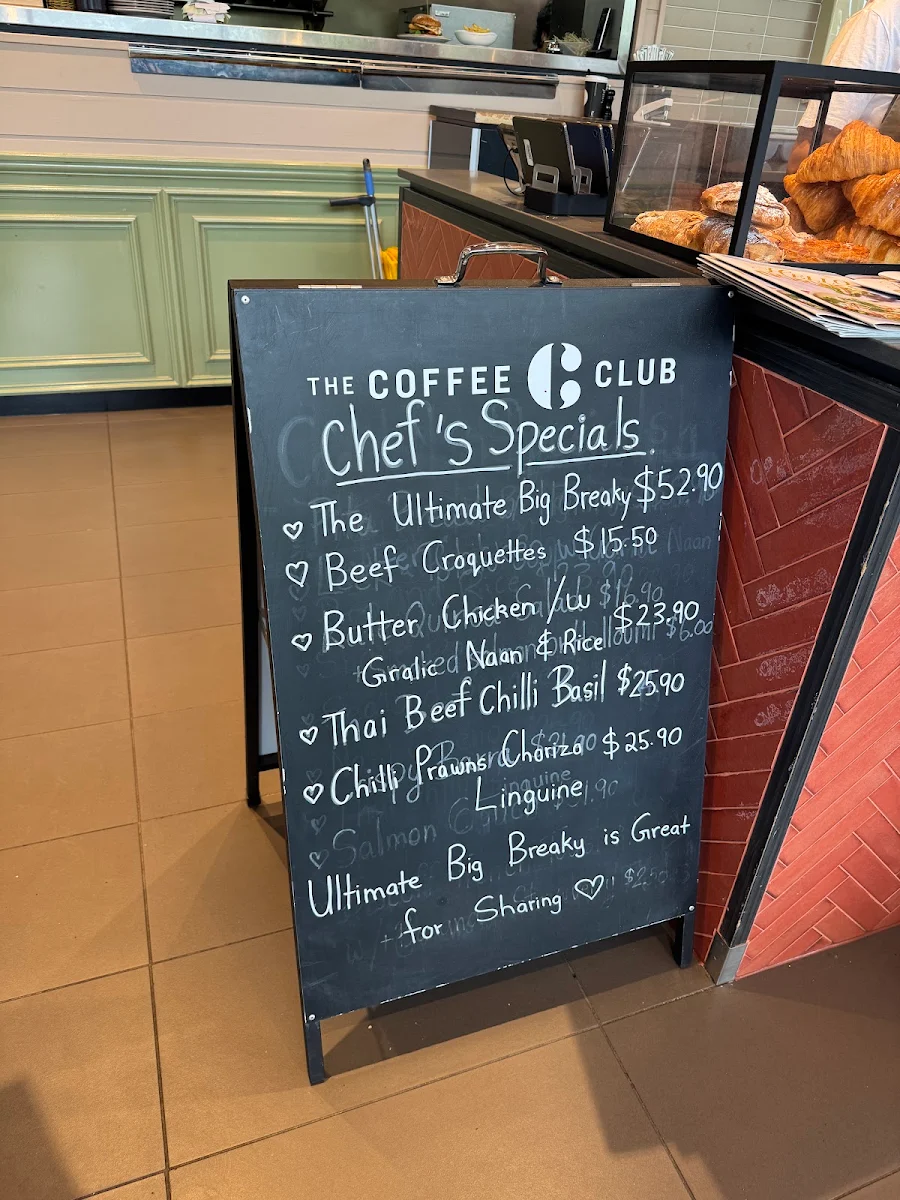 THE COFFEE CLUB
Chef's Specials
The Ultimate Big Breaky $52.90
Beef Croquettes $15.50
Butter Chicken /w $23.90
Gralic Naan & Rice
Thai Beef Chilli Basil $25.90
Chilli Prawns Choriza $25.90
Linguine
Ultimate Big Breaky is Great
for Sharing